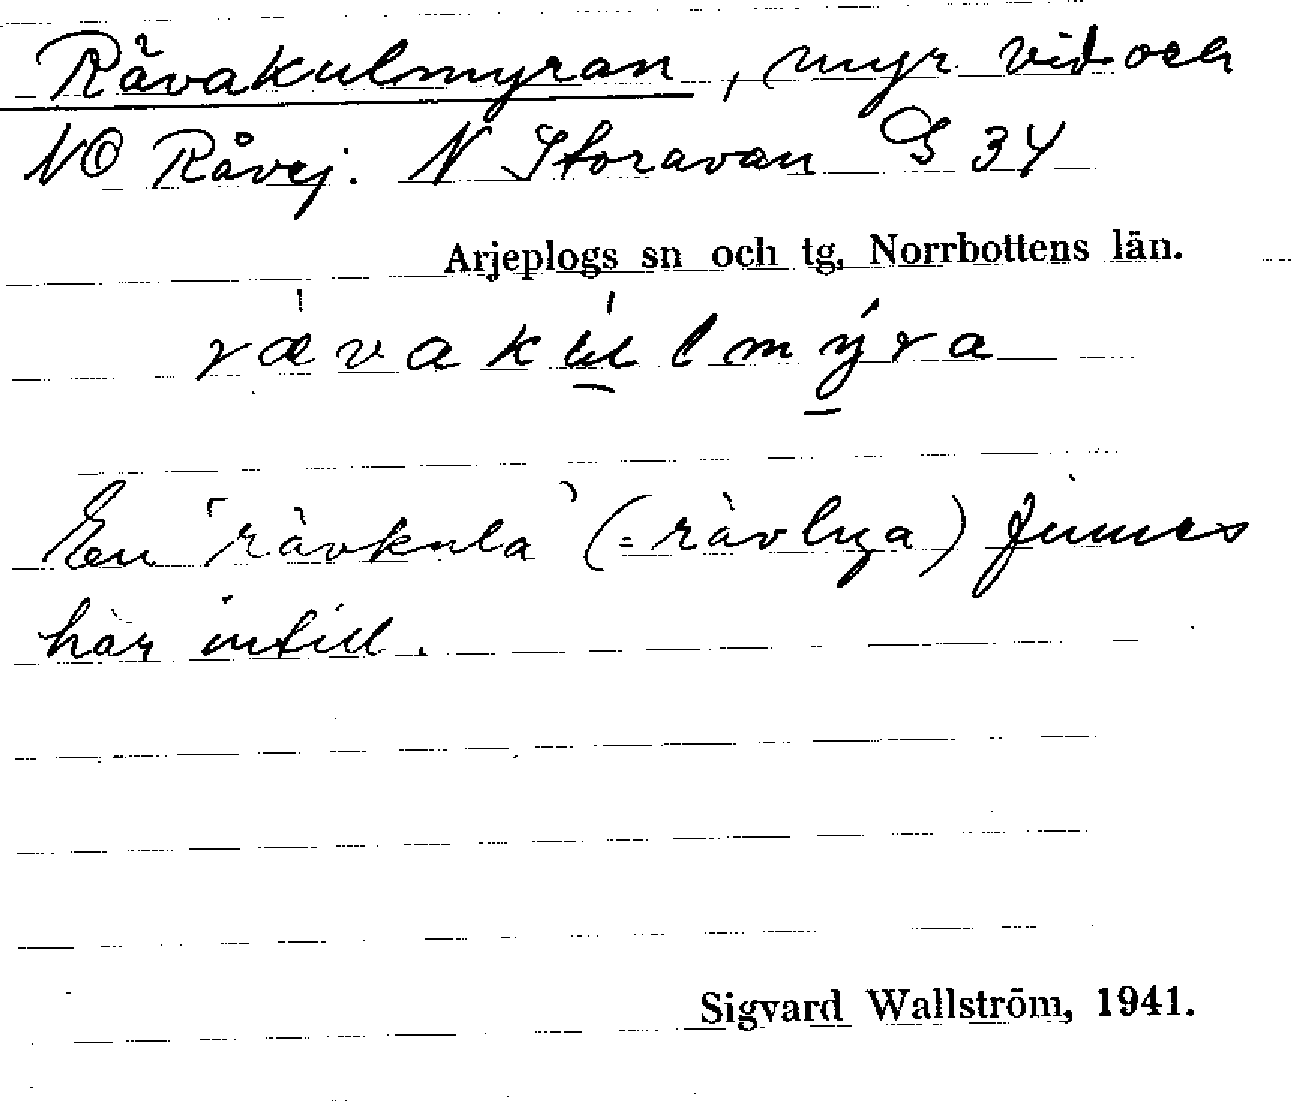 Rävakulmyran, myr vid och
NO Råvej. N Storavan S 34
Arjeplogs sn och tg, Norrbottens län.
rævakúlmýra
En "rävkula" (= rävlya) finnes
här intill.
Sigvard Wallström, 1941.